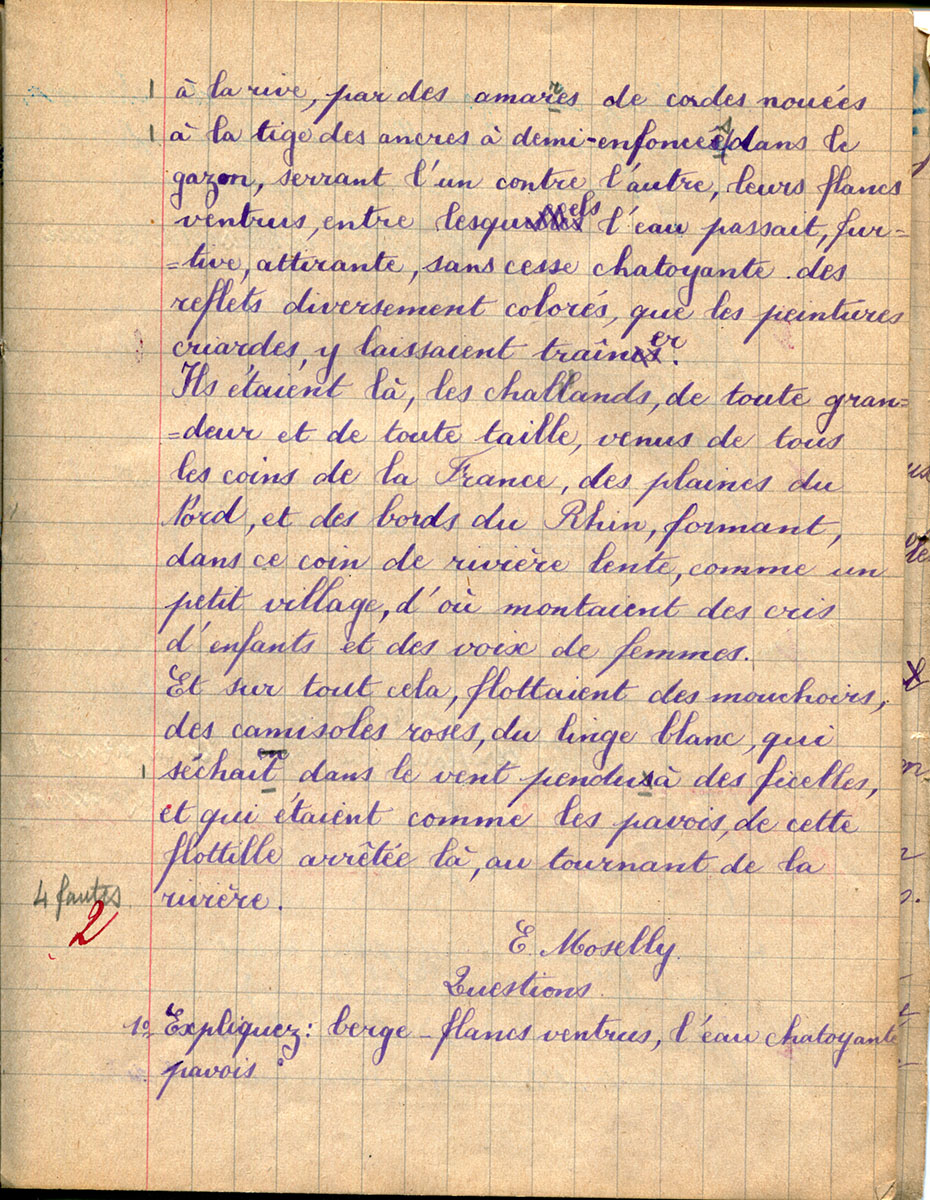 1 à la rive, par des amares de cordes nouées
1 à la tige des ancres à demi-enfoncées dans le
gazon, serrant l'un contre l'autre, leurs flancs
ventrus, entre lesquels l'eau passait, fur-
=tive, attirante, sans cesse chatoyante des
reflets diversement colorés, que les peintures
criardes, y laissaient traîner.
Ils étaient là, les challands, de toute gran=
=deur et de toute taille, venus de tous
les coins de la France, des plaines du
Nord, et des bords du Rhin, formant,
dans ce coin de rivière lente, comme un
petit village, d'où montaient des cris
d'enfants et des voix de femmes.
Et sur tout cela, flottaient des mouchoirs,
des camisoles roses, du linge blanc, qui
1 séchait dans le vent pendus à des ficelles,
et qui étaient comme les pavois, de cette
flottille arrêtée là, au tournant de la
4 fautes rivière.
2
E. Moselly
Questions
1º Expliquez: berge - flancs ventrus, l'eau chatoyante
pavois